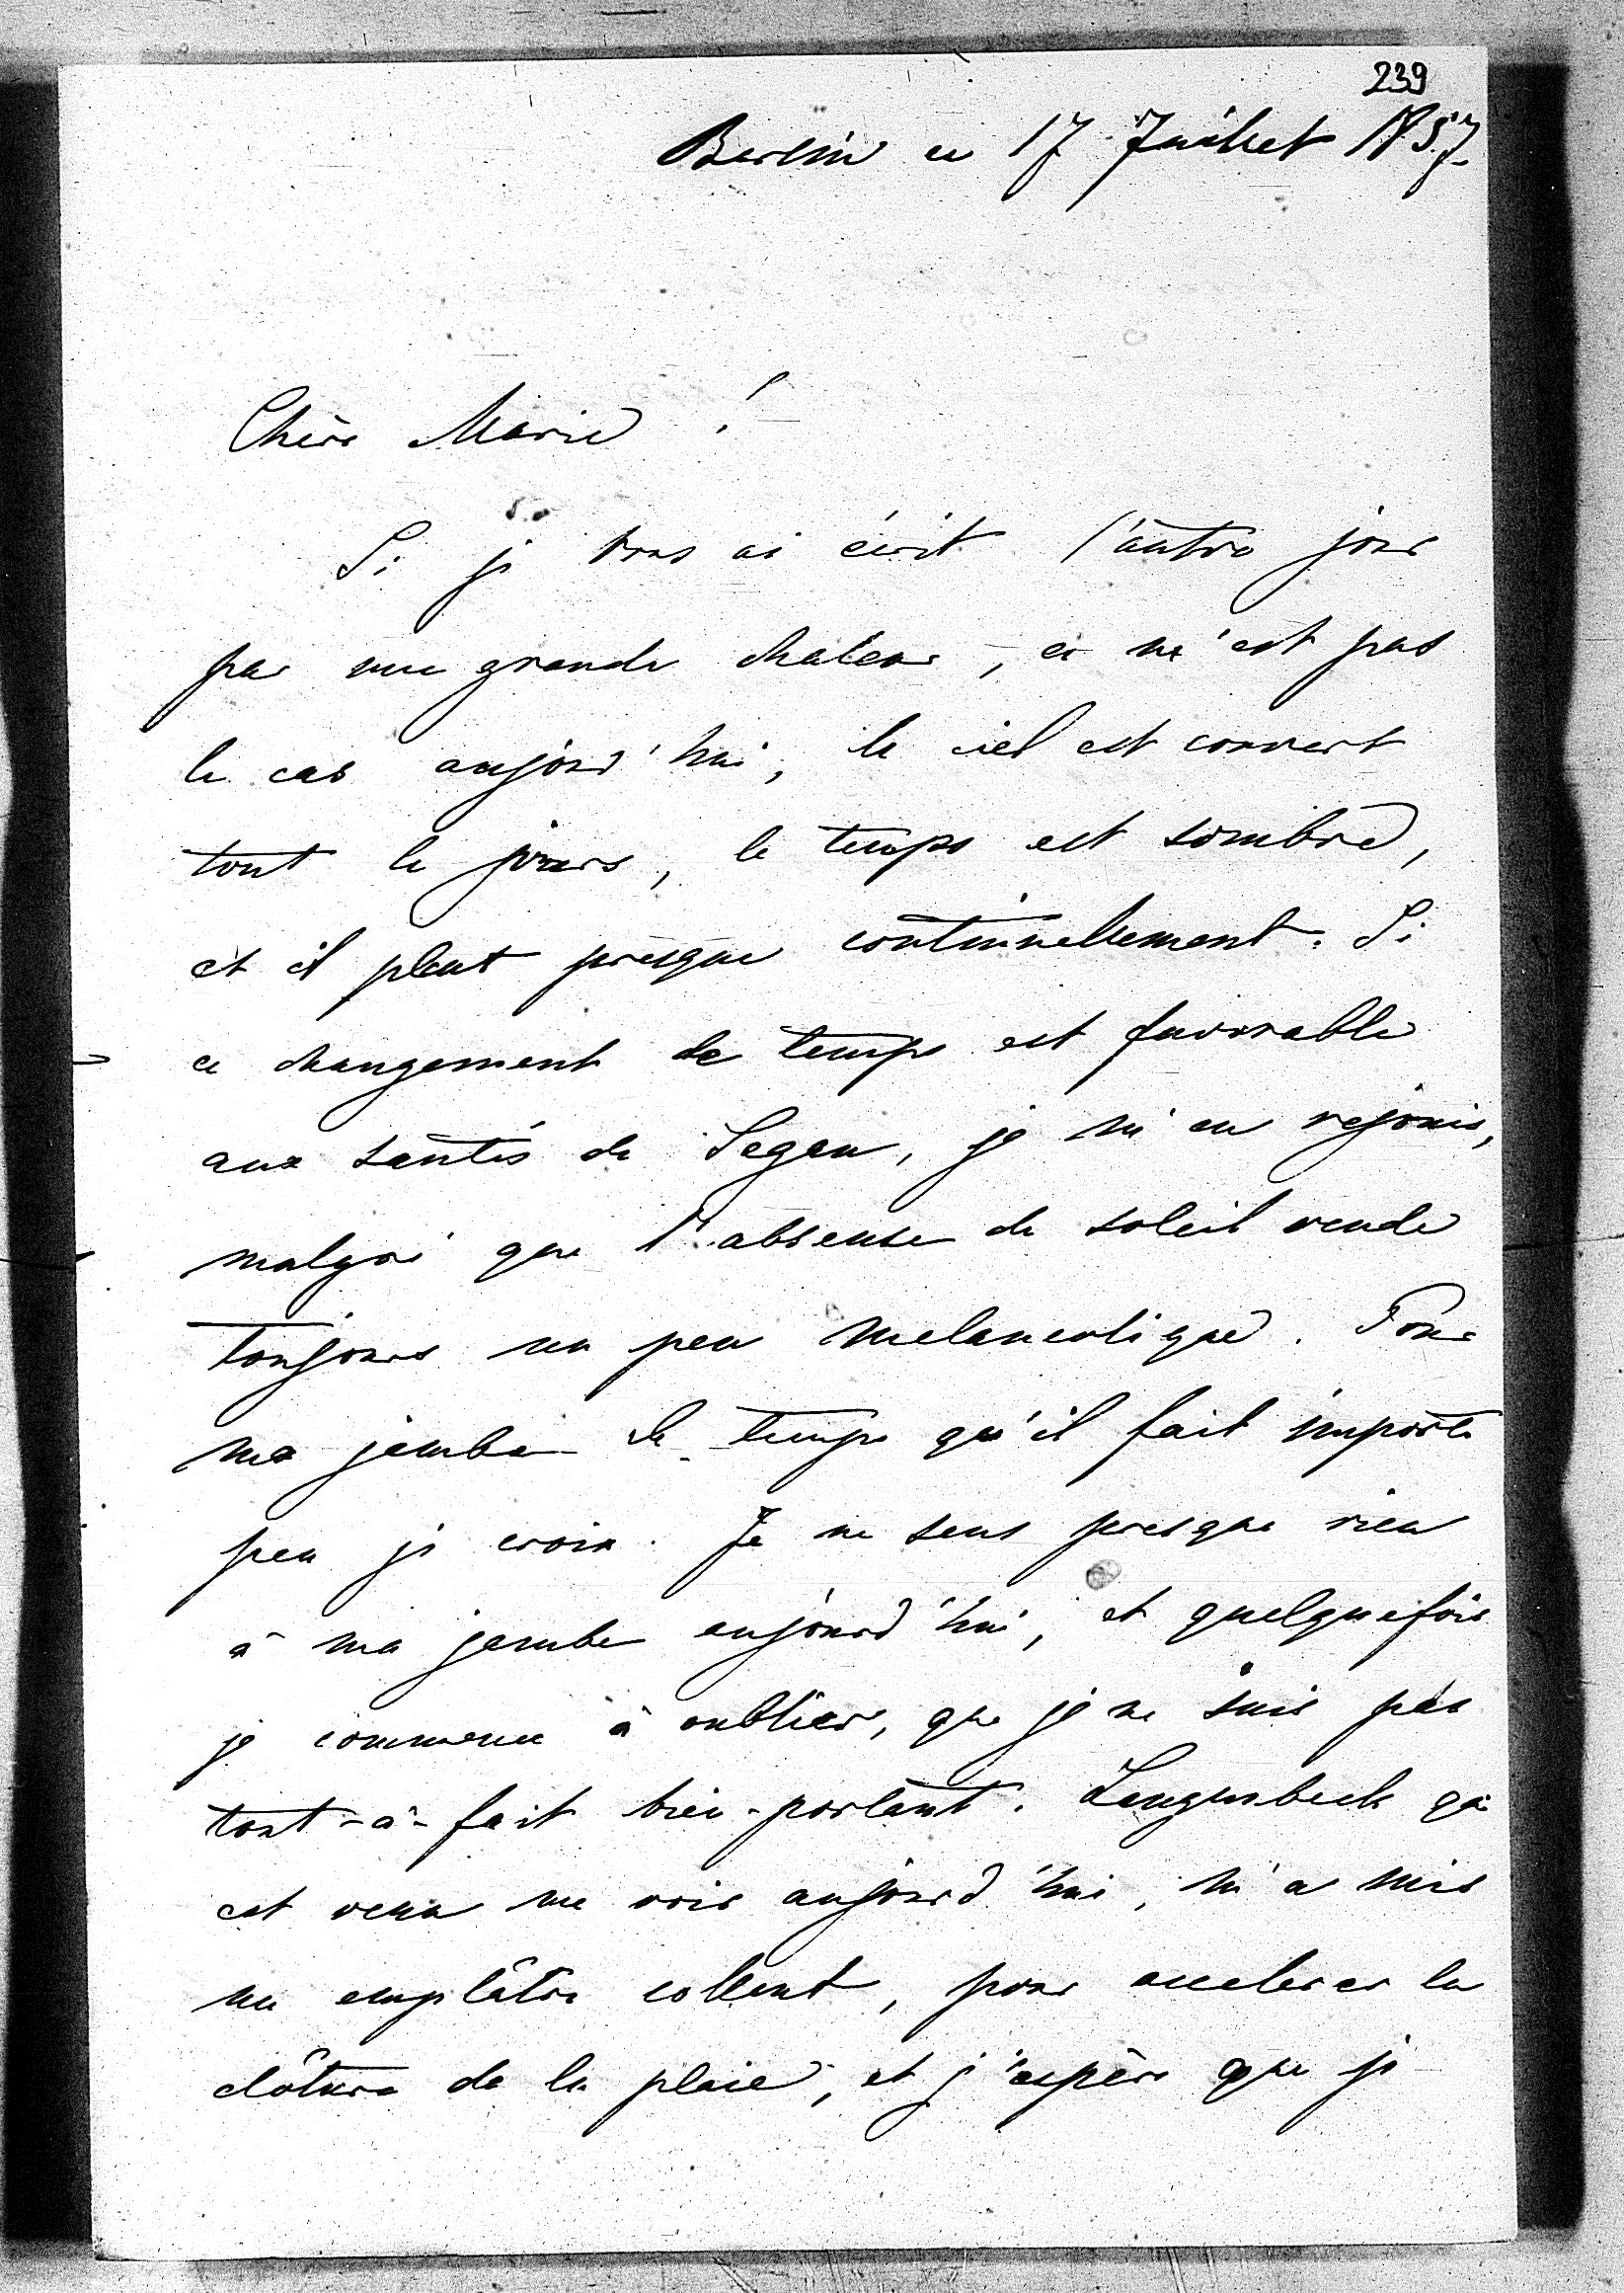 239
Berlin ce 17 Juillet 1857.
Chère Marie !
Si je vous ai écrit l'autre jour
par une grande chaleur, ce n'est pas
le cas aujourd'hui, le ciel est couvert
tout le jours, le temps est sombre,
et il pleut presque continuellement. Si
ce changement de temps est favorable
aux santés de Segan, je m'en rejouis,
malgré que l'absense de soleil rende
toujours un peu melancolique. Pour
ma jambe le temps qu'il fait importe
peu je crois. Je ne sens presque rien
à ma jambe aujourd'hui, et quelquefois
je commence à oublier, que je ne suis pas
tout-à-fait bien-portant. Langenbeck qui
est venu me voir aujourd'hui, m'a mis
un emplâtre collent, pour accelerer la
clôture de la plaie, et j'espère que je